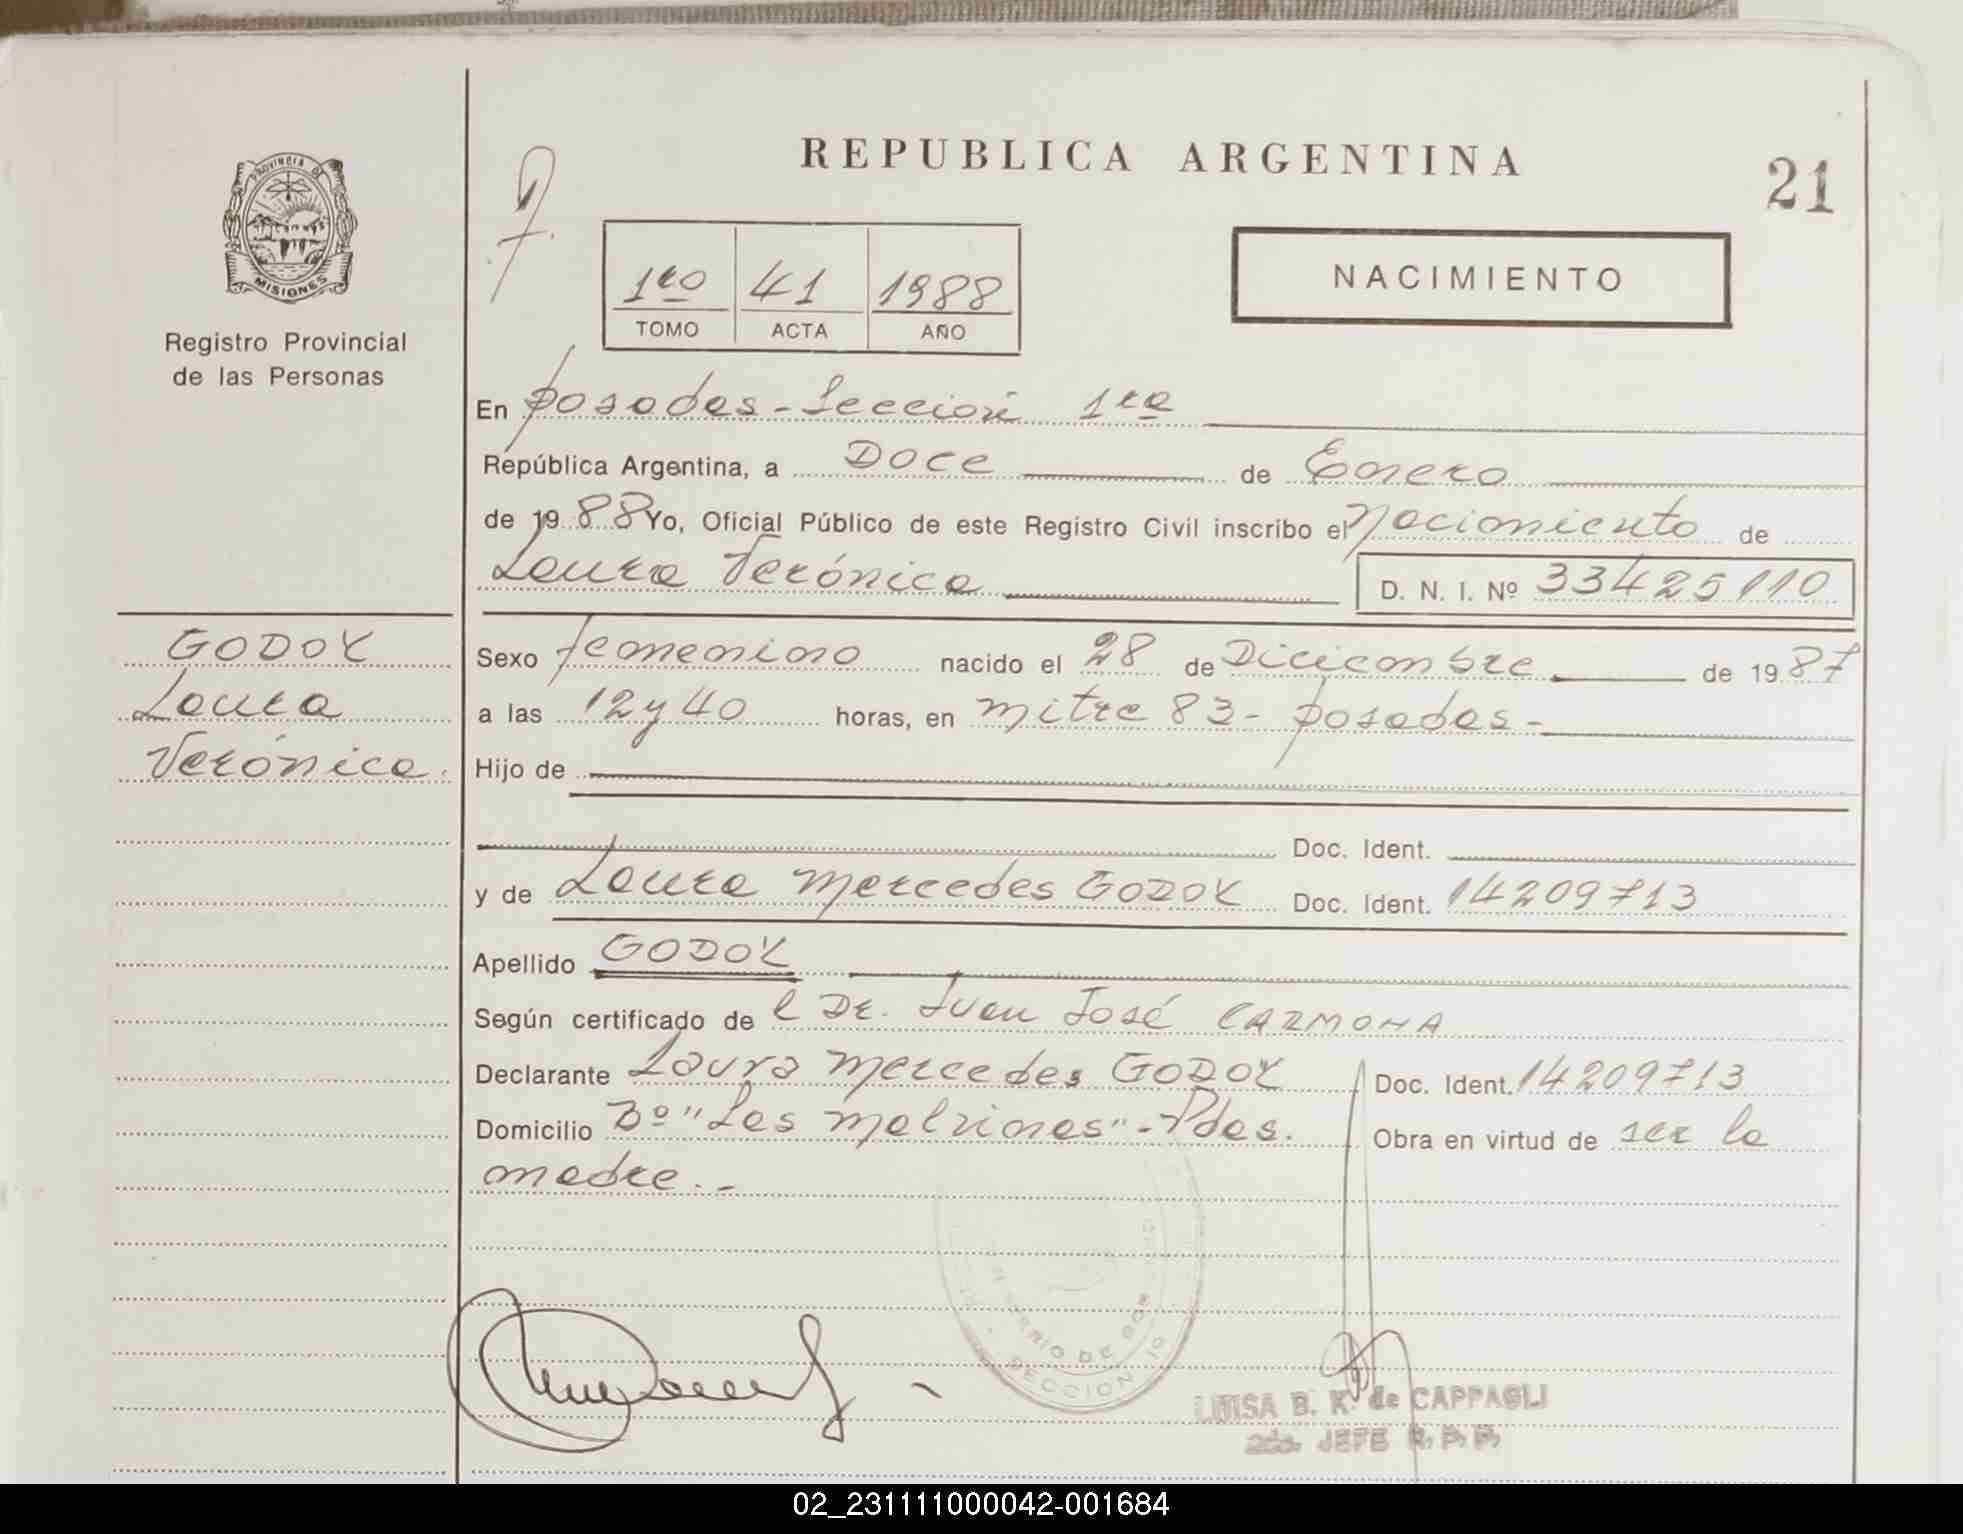 REPUBLICA ARGENTINA
21
PROVINCIA DE
MISIONES
Registro Provincial
de las Personas
1ro 41 1988
TOMO ACTA AÑO
NACIMIENTO
En posadas - Sección 1ra
República Argentina, a Doce de Enero
de 1988 Yo, Oficial Público de este Registro Civil inscribo el Nacimiento de
Laura Verónica D. N. I. Nº 33425110
GODOY
Laura
Verónica.
Sexo femenino nacido el 28 de Diciembre de 1987
a las 12 y 40 horas, en mitre 83 - posadas -
Hijo de
Doc. Ident.
y de Laura Mercedes GODOY Doc. Ident. 14209713
Apellido GODOY
Según certificado de l Dr. Juan José CARMONA
Declarante Laura Mercedes GODOY Doc. Ident. 14209713
Domicilio Bº "Las Malvinas" - Pdas. Obra en virtud de ser la
madre. -
SECCION 1º
LUISA B. K. de CAPPAGLI
2da. JEFE R. P. P.
02_231111000042-001684